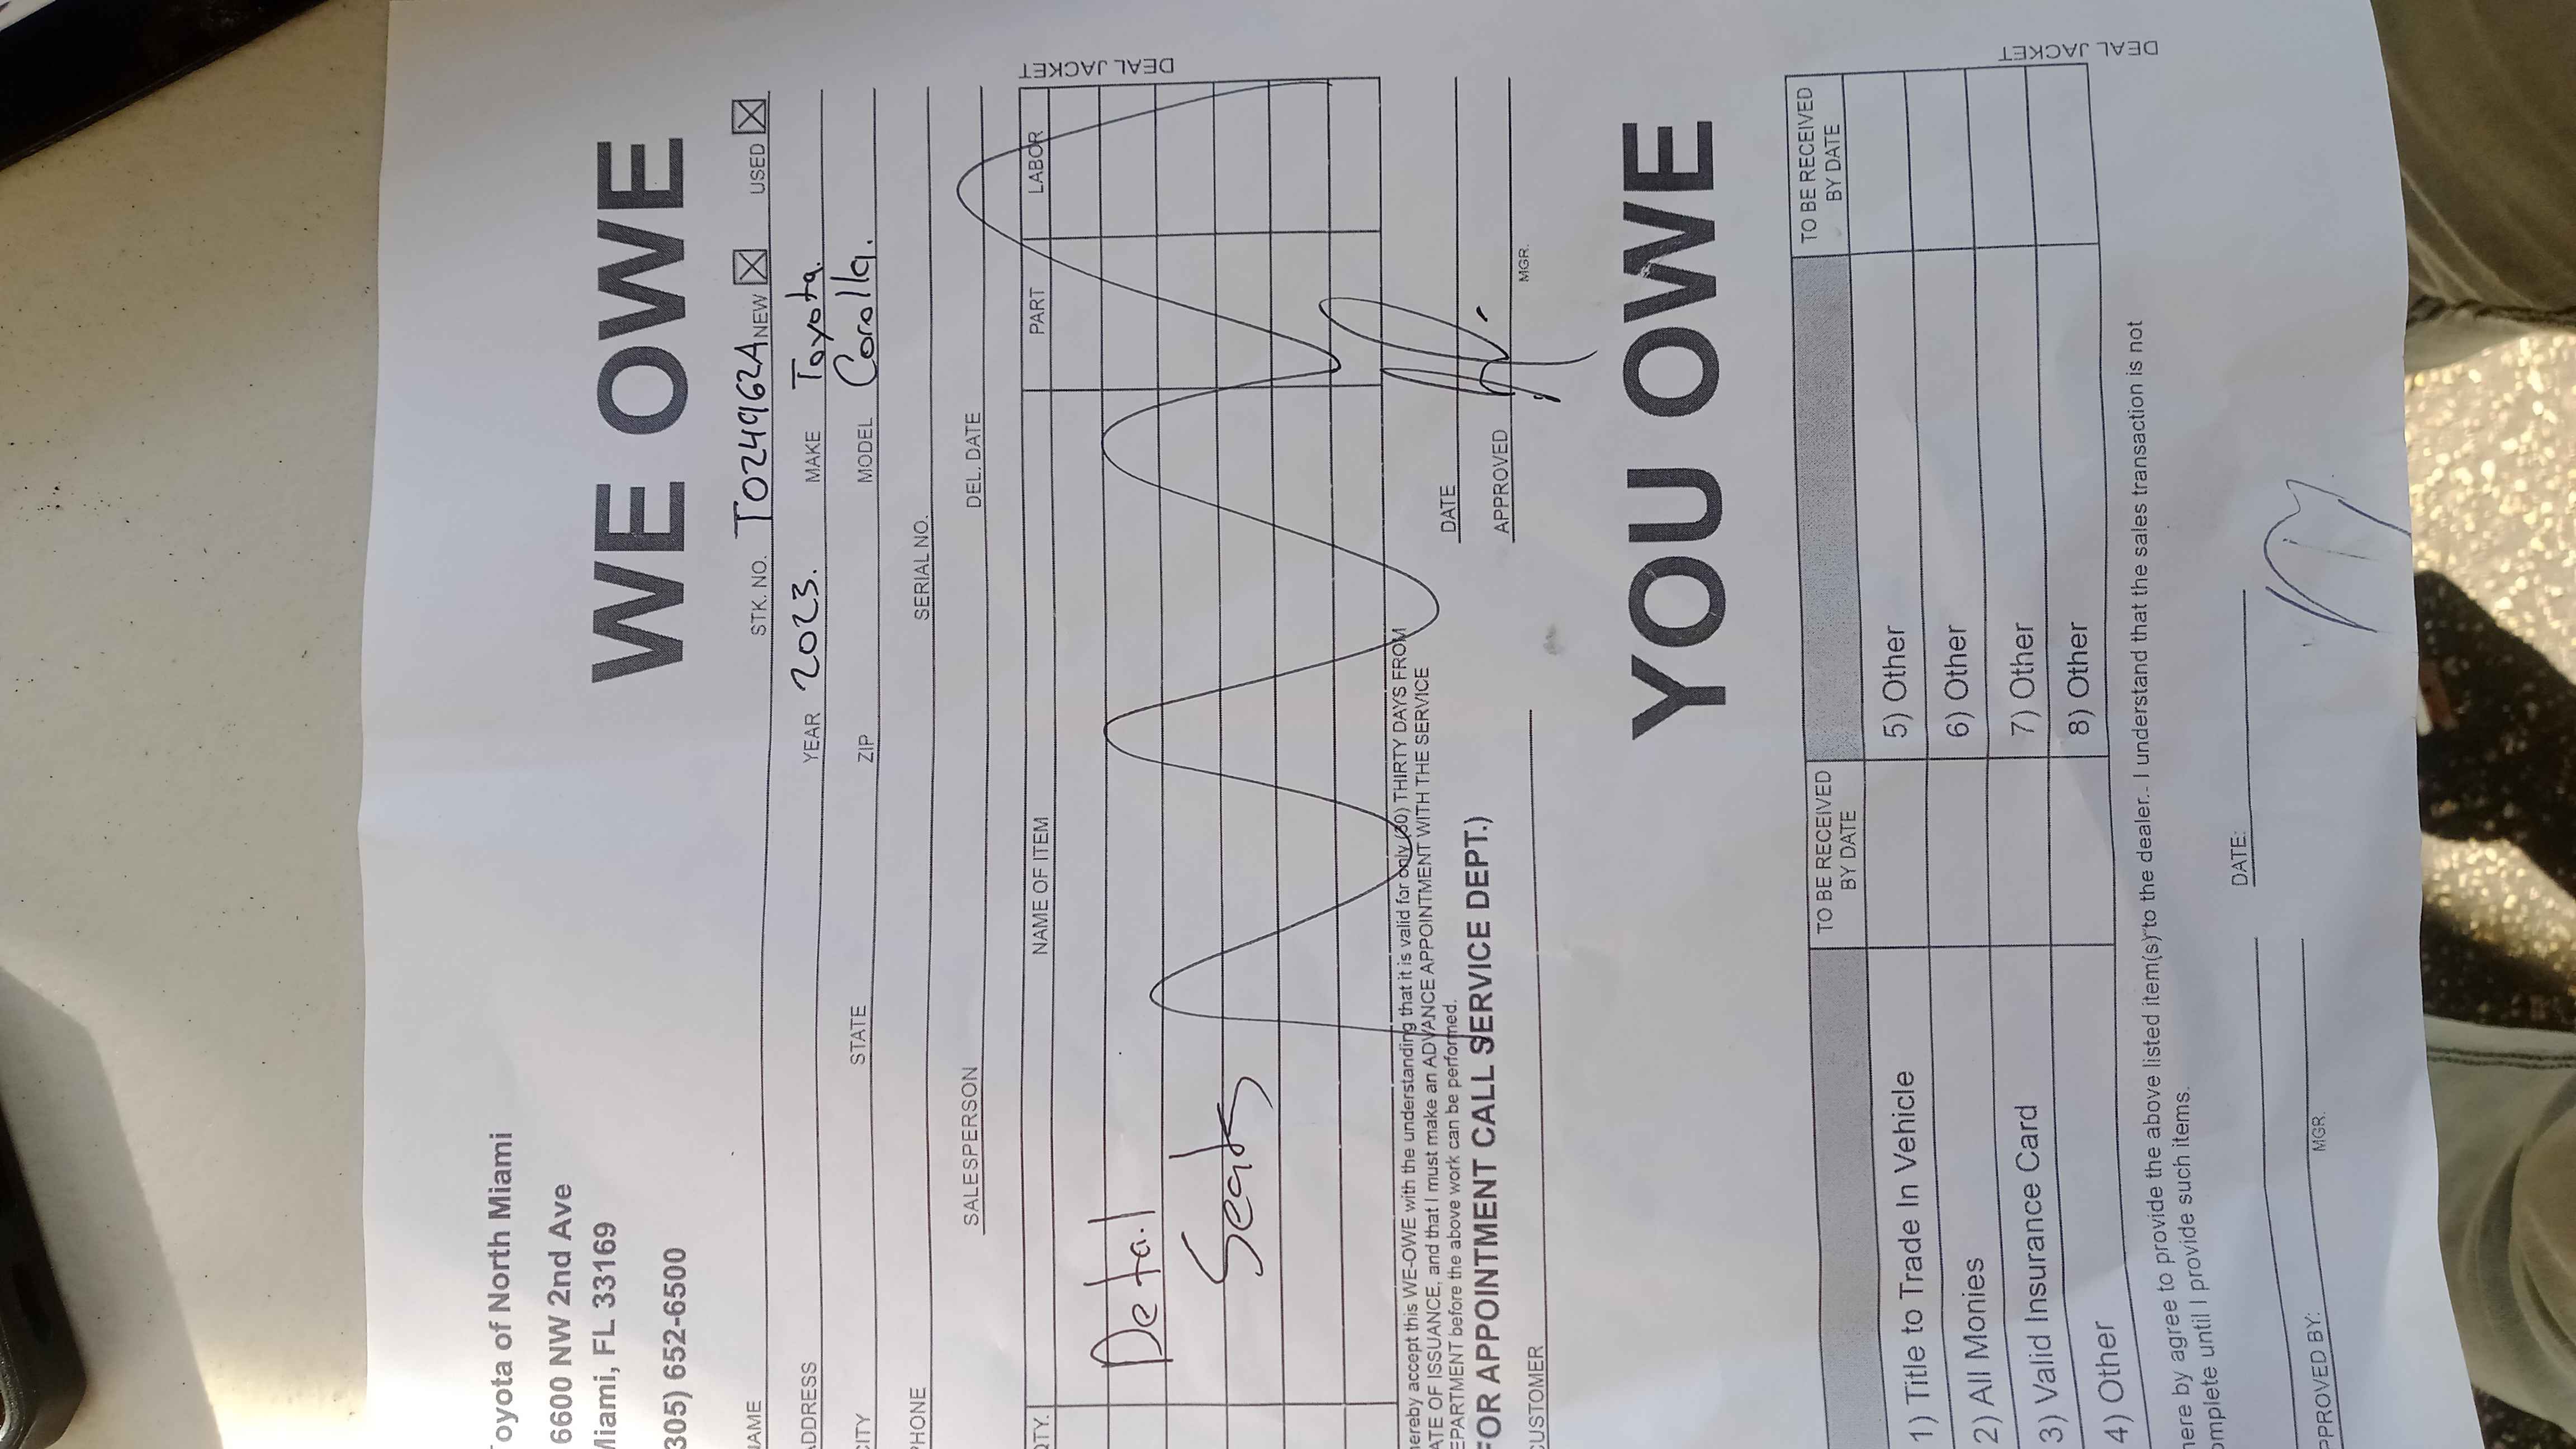 oyota of North Miami
6600 NW 2nd Ave
Miami, FL 33169
305) 652-6500
WE OWE
AME STK. NO. T0249624A NEW ☒ USED ☒
DDRESS YEAR 2023. MAKE Toyota.
CITY STATE ZIP MODEL Corolla.
PHONE SERIAL NO.
SALESPERSON DEL. DATE
QTY. NAME OF ITEM PART LABOR
Detail
Seats
DEAL JACKET
ereby accept this WE-OWE with the understanding that it is valid for only (30) THIRTY DAYS FROM
ATE OF ISSUANCE, and that I must make an ADVANCE APPOINTMENT WITH THE SERVICE
EPARTMENT before the above work can be performed.
FOR APPOINTMENT CALL SERVICE DEPT.)
DATE
CUSTOMER APPROVED
MGR.
YOU OWE
TO BE RECEIVED BY DATE TO BE RECEIVED BY DATE
1) Title to Trade In Vehicle 5) Other
2) All Monies 6) Other
3) Valid Insurance Card 7) Other
4) Other 8) Other
DEAL JACKET
here by agree to provide the above listed item(s) to the dealer. I understand that the sales transaction is not
omplete until I provide such items.
DATE:
PPROVED BY:
MGR.